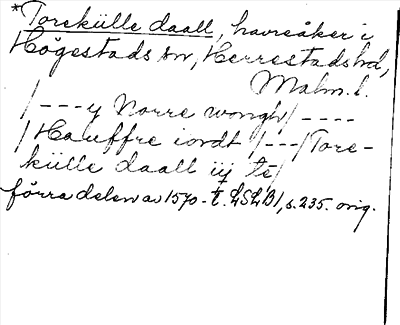 *Torekülle daall, havreåker i
Högestads sn, Herrestads hd,
Malm. l.
/---y Norre wongh/----
/Hauffre iordt/---/Tore-
külle daall üj te/
förra delen av 1570-t. LSLB1, s. 235. orig.